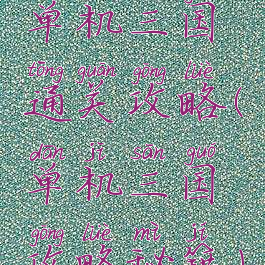 单机三国
tōng guān gōng lüè
通关攻略(
dān jī sān guó
单机三国
gōng lüè mì jí
攻略秘籍)